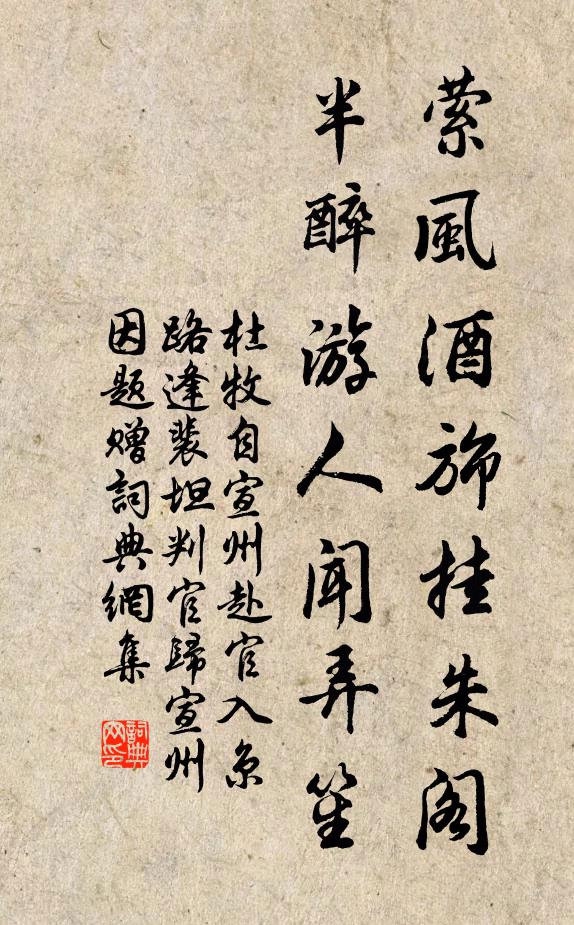 萦風酒旆挂朱阁
半醉游人闻弄笙
杜牧自宣州赴官入京
路逢裴坦判官歸宣州
因题赠詞典網集
詞典
网印